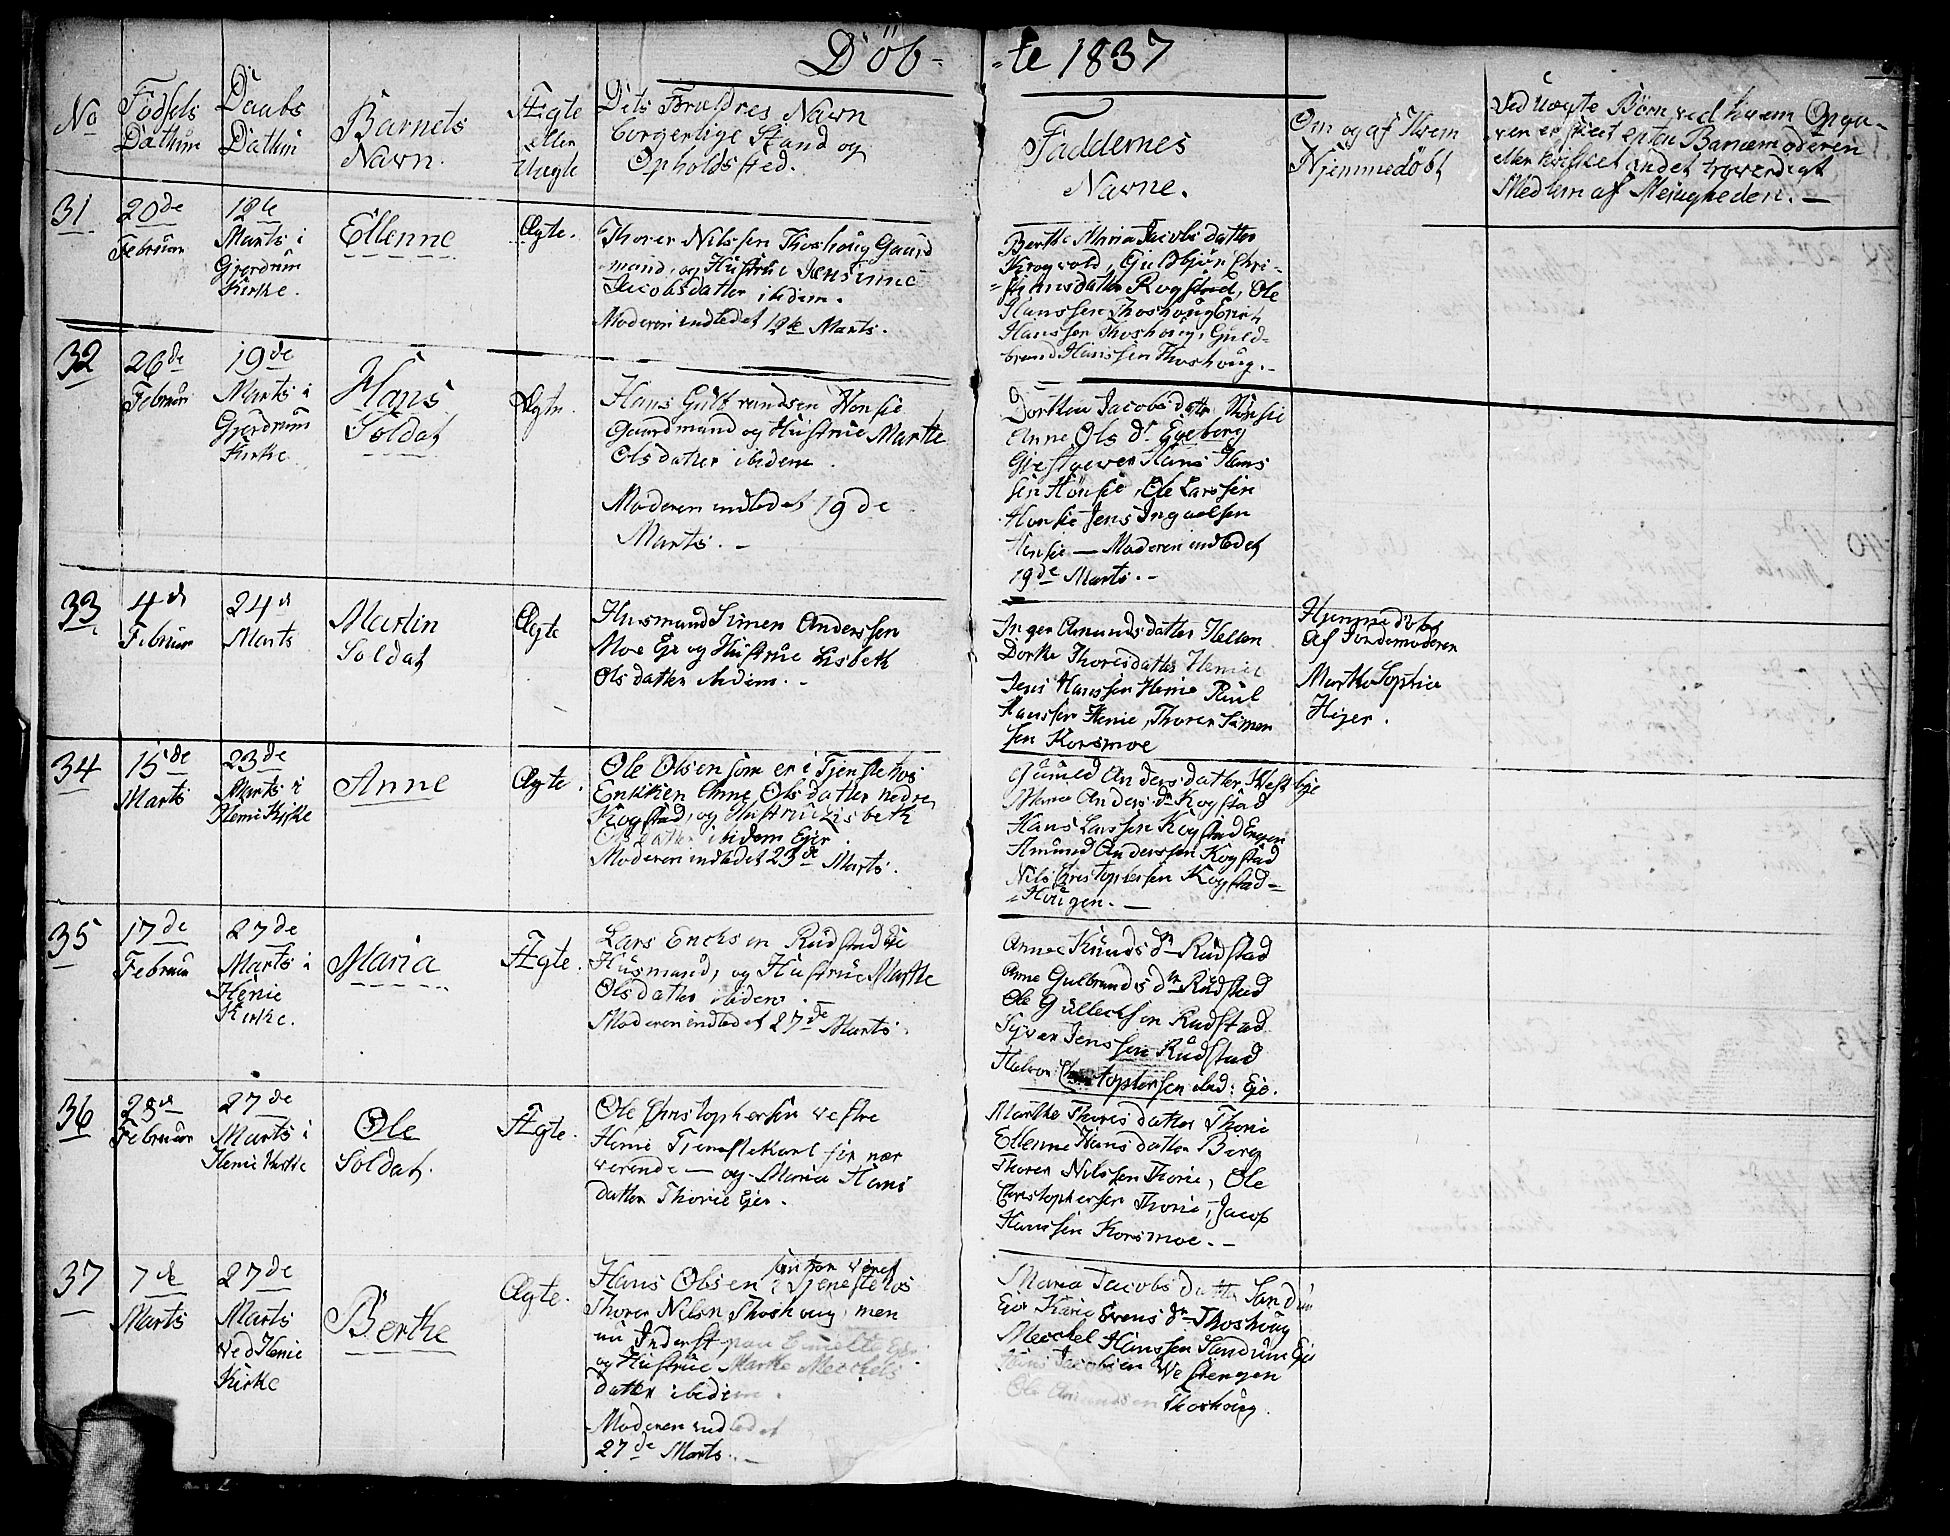 Döb- -te 1837
No
Födsels Dathum
Daabs Dathum
Barnets Navn.
Ægte eller Uægte
Dets Forældres Navn
borgerlige Stand og
Opholdsted.
Faddernes
Navne.
Om og af Hvem
Hjemmedöbt
Ved uægte Börn ved hvem Opga-
ven er skeet enten Barnemoderen
eller hvilket andet troværdigt
Medlem af Menigheden. —
31
20de
Februar
12te
Marts i
Gjerdrum
Kirke.
Ellenne
Ægte.
Thorer Nilssen Thoshoug Gaard
mand, og Hustrue Jensinne
Jacobsdatter ibidem.
Moderen indledet 12te Marts.
Berthe Maria Jacobsdatter
Krogvold, Guldbjör Chri-
=stiansdatter Rogstad, Ole
Hanssen Thoshoug Erich
Hanssen Thoshoug, Guld-
brand Hanssen Thoshoug. -
32
26de
Februar
19de
Marts i
Gjerdrum
Kirke
Hans
Soldat
Ægte.
Hans Gulbrandsen Hönsie
Gaardmand og Hustrue Marthe
Olsdatter ibidem.
Moderen indledet 19de
Marts. -
Dorthea Jacobsdatter Hönsie
Anne Ols dr Egeberg
Giestgever Hans Hans
sen Hönsie, Ole Larssen
Hönsie Jens Ingvelsen
Hönsie — Moderen indledet
19de Marts. -
33
4de
Februar
24de
Marts
Martin
Soldat
Ægte
Husmand Simen Anderssen
Moe Ejer og Hustrue Lisbeth
Olsdatter ibidem. -
Inger Amundsdatter Hellen
Dorthe Thoresdatter Henie
Jens Hanssen Henie Paul
Hanssen Henie, Thorer Simen
sen Korsmoe
Hjemmedöbt
af Jordemoderen
Marthe Sophie
Hejer.
34
15de
Marts
23de
Marts i
Henie Kirke
Anne
Ægte.
Ole Olsen som er i Tjeneste hos
Enkken Anne Olsdatter nedre
Kogstad, og Hustrue Lisbeth
Olsdatter ibidem Ejer.
Moderen indledet 23de Marts.
Gunild Andersdatter Westbye
Maria Anders dr Kogstad
Hans Larssen Kogstad Engen
Amund Anderssen Kogstad
Nils Christophersen Kogstad=
=Hougen. —
35
17de
Februar
27de
Marts i
Henie
Kirke.
Maria
Ægte.
Lars Erichsen Rudstad Eje
Husmand, og Hustrue Marthe
Olsdatter ibidem.
Moderen indledet 27de Marts.
Anne Knuds dr Rudstad
Anne Gulbrands dr Rudstad
Ole Gullechsen Rudstad
Syver Jenssen Rudstad
Halvor Christophersen ibid: Eje.
36
28de
Februar
27de
Marts i
Henie Kirke
Ole
Soldat.
Ægte.
Ole Christophersen vestre
Henie Tjenestekarl for nær
verende — og Maria Hans
datter Thorie Ejer.
Marthe Thoresdatter Thorie
Ellenne Hansdatter Berg
Thorer Nilssen Thorie, Ole
Christophersen Thorie, Jacob
Hanssen Korsmoe. -
37
7de
Marts
27de
Marts
ved Henie
Kirke
Berthe
Ægte.
som har været
Hans Olsen i Tjeneste hos
Thorer Nilsen Thoshoug, men
nu Inderst paa Ejer
og Hustrue Marthe Mechels
datter ibidem.
Moderen indledet
27de Marts. -
Maria Jacobsdatter Sandum
Eie Karie Evens dr Thoshoug
Mechel Hanssen Sandum Eje
Hans Jacobsen Westengen
Ole Amundsen Thoshoug.